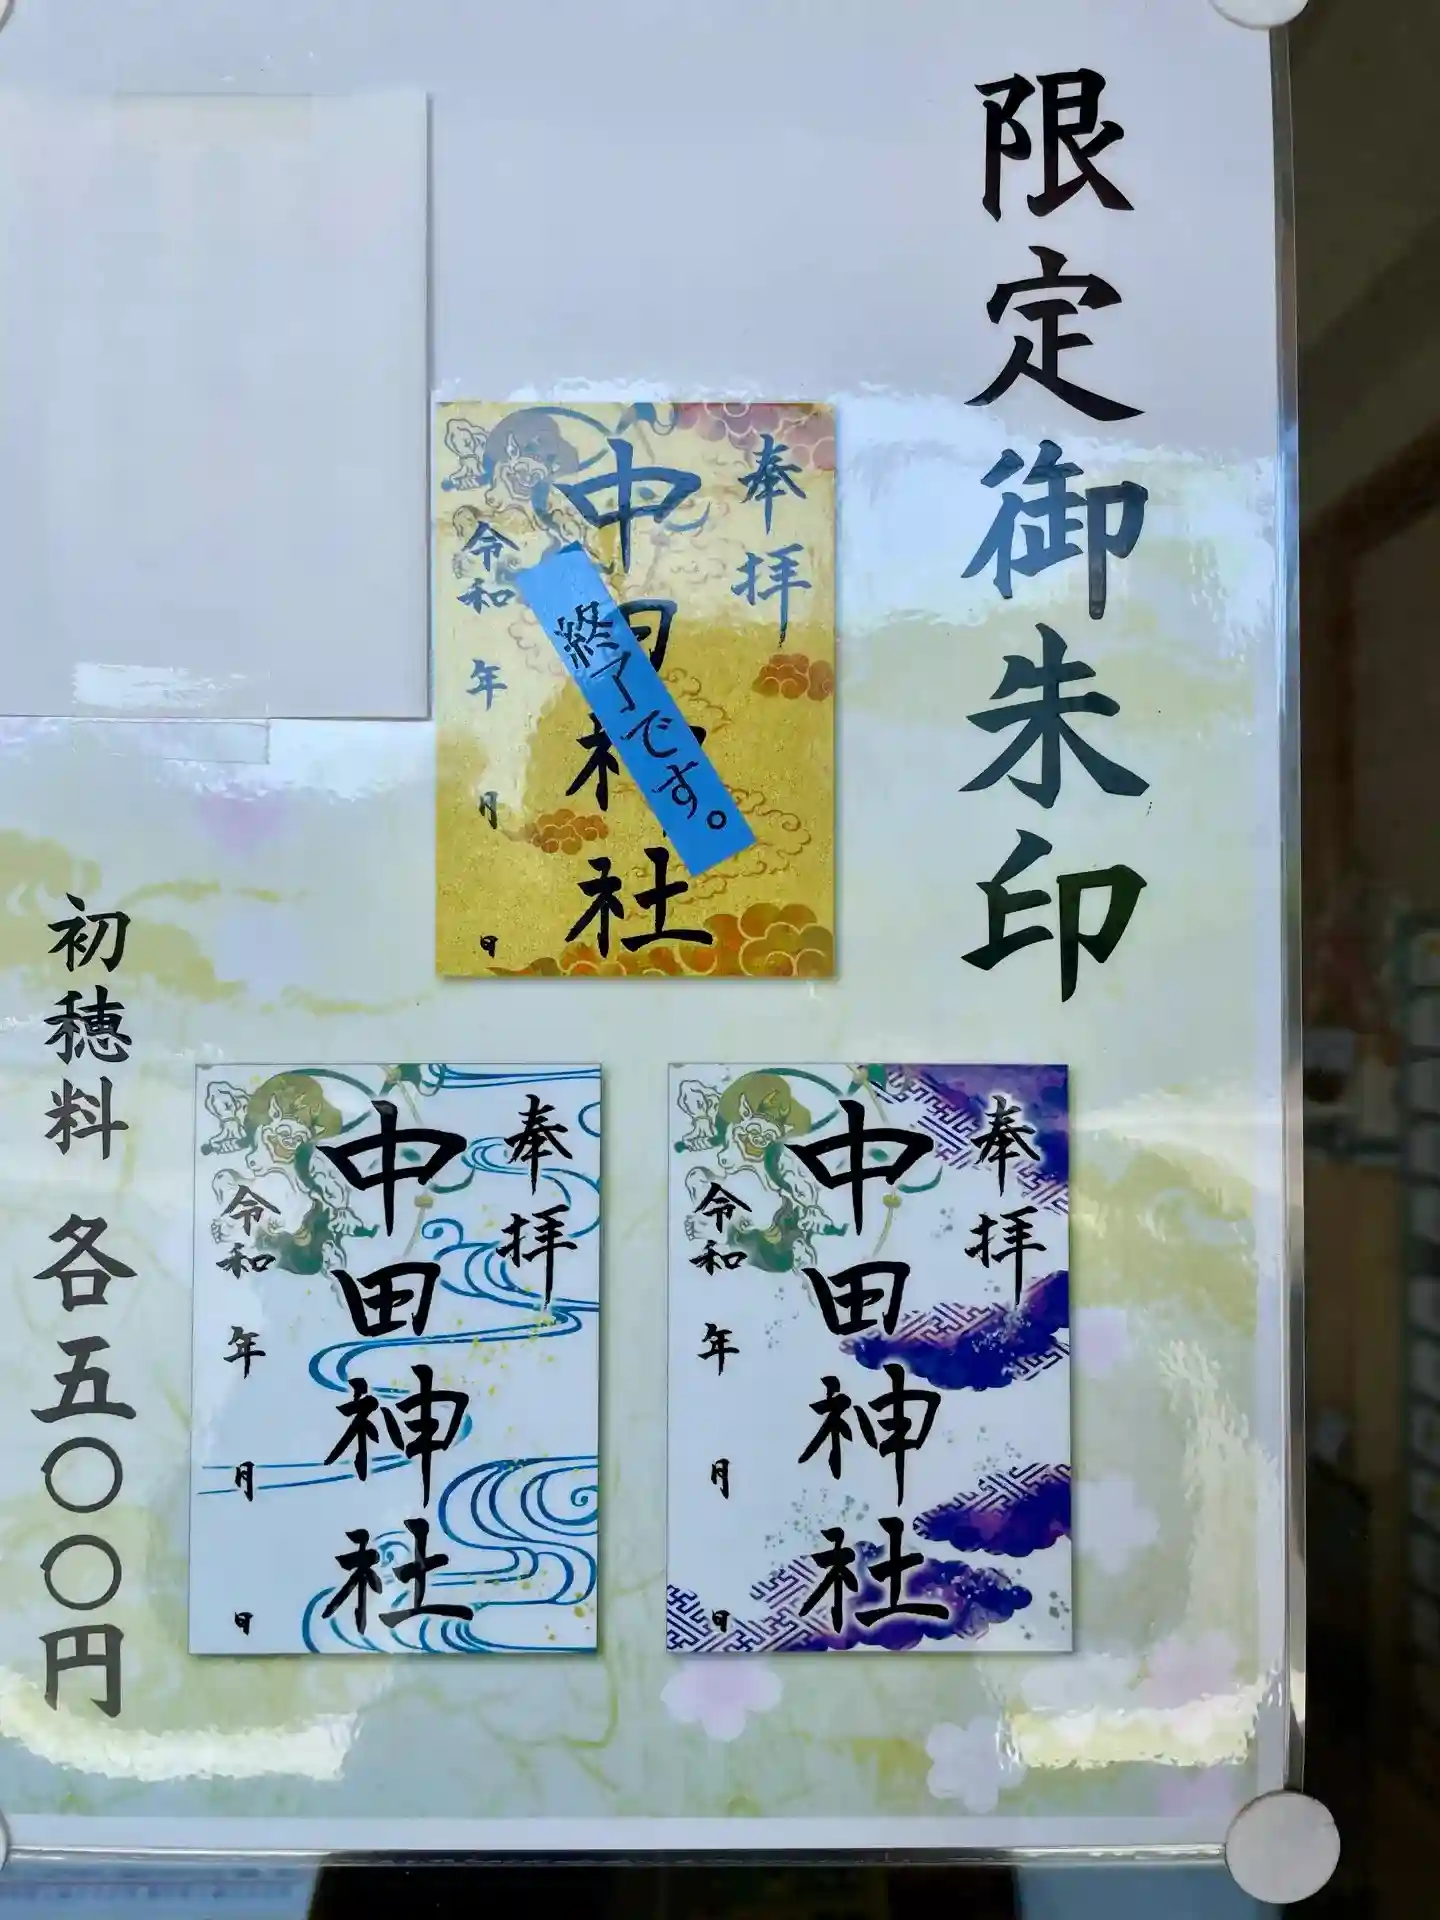 限定御朱印
奉拝
中田神社
令和 年 月 日
終了です。
奉拝
中田神社
令和 年 月 日
奉拝
中田神社
令和 年 月 日
初穂料 各五〇〇円